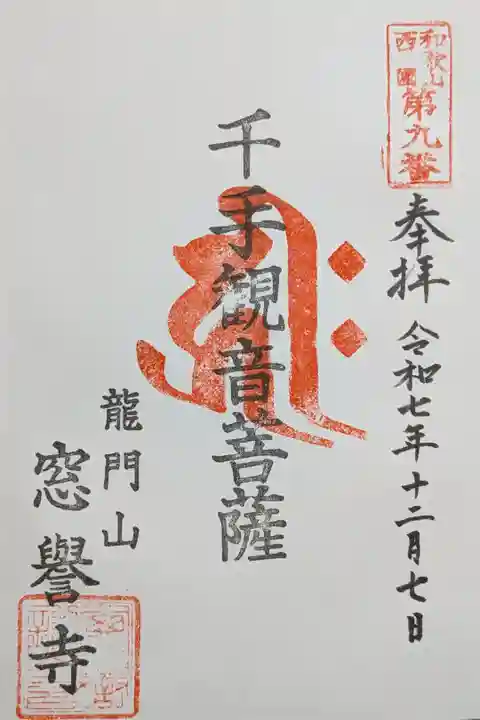 和歌山
西國
第九番
奉拝 令和七年十二月七日
千手観音菩薩
龍門山
窓譽寺